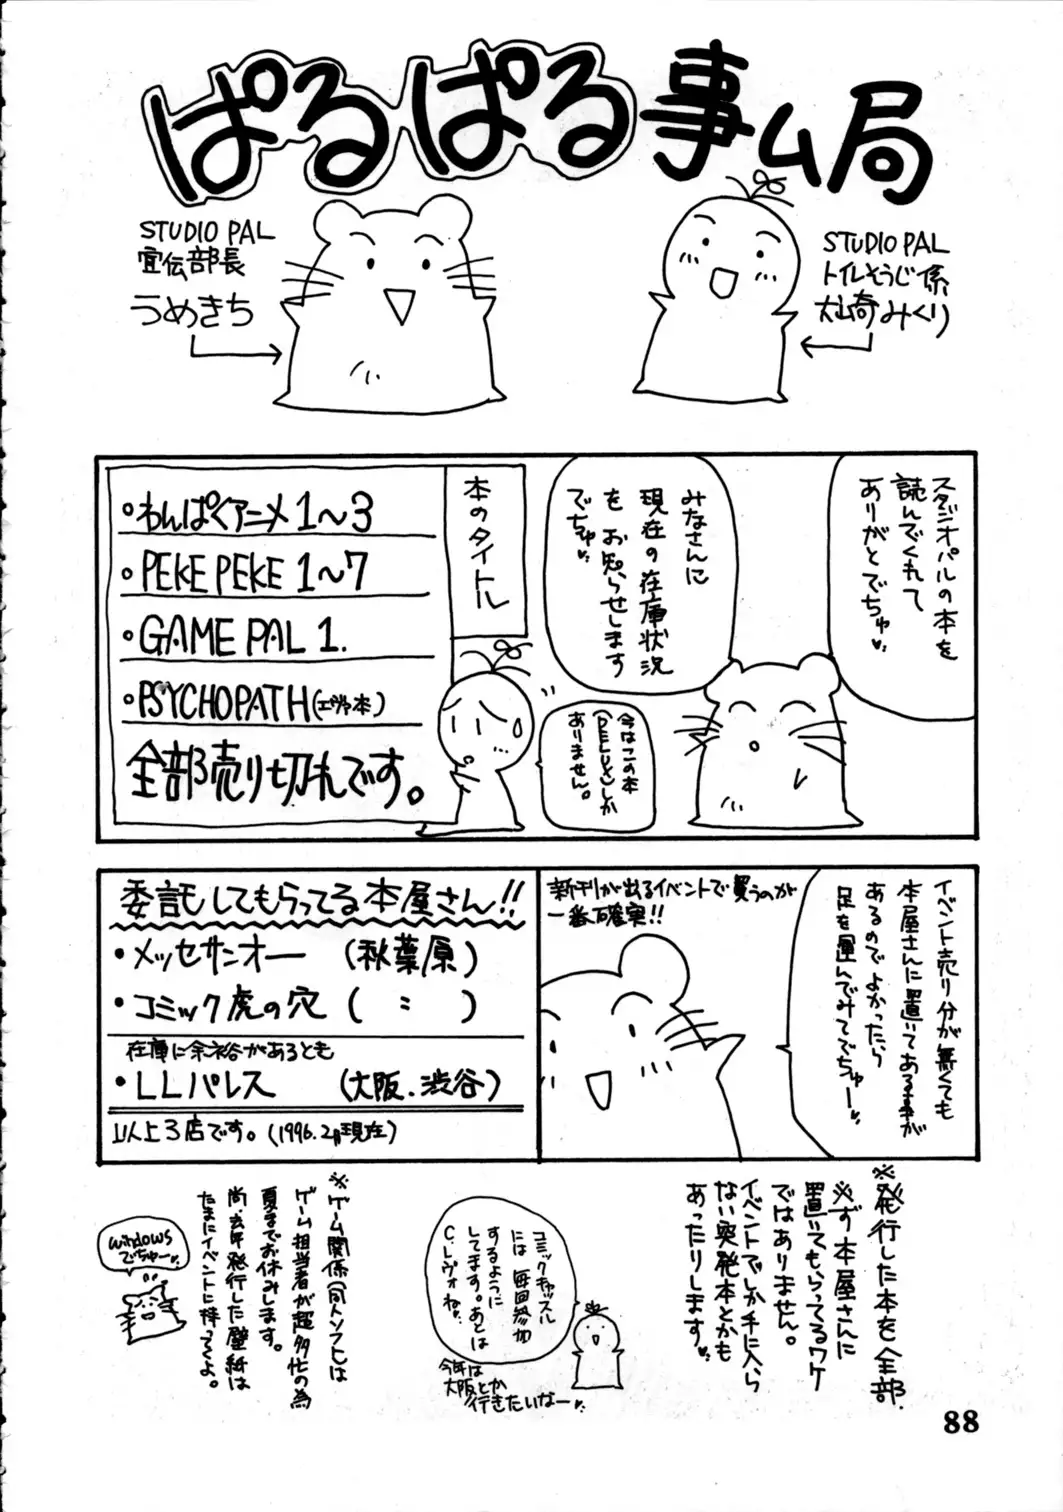 ぱるぱる事ム局
STUDIO PAL
宣伝部長
うめきち
STUDIO PAL
トイレそうじ係
犬崎みくり
スタジオパルの本を
読んでくれて
ありがとでちゅ
みなさんに
現在の在庫状況
を お知らせします
でちゅ
今はこの本
しか
ありません。
本のタイトル
・わんぱくアニメ1〜3
・PEKE PEKE 1〜7
・GAME PAL 1.
・PSYCHOPATH(エヴァ本)
全部売り切れです。
イベント売り分が無くても
本屋さんに置いてある事が
あるのでよかったら
足を運んでみてでちゅー
新刊が出るイベントで買うのが
一番確実!!
委託してもらってる本屋さん!!
・メッセサンオー (秋葉原)
・コミック虎の穴 ( 〃 )
在庫に余裕があるとも
・LLパレス (大阪.渋谷)
以上3店です。(1996.2月現在)
※発行した本を全部
※ず本屋さんに
置いてもらってるワケ
ではありません。
イベントでしか手に入ら
ない突発本とかも
あったりします
コミックキャッスル
には毎回参加
するように
してます。あとは
C.レヴォね。
今年は
大阪とか
行きたいなー
※ゲーム関係(同人ソフト)は
ゲーム担当者が超多忙の為
夏までお休みします。
尚、去年発行した壁紙は
たまにイベントに持ってくよ。
windows
でちゅー
88